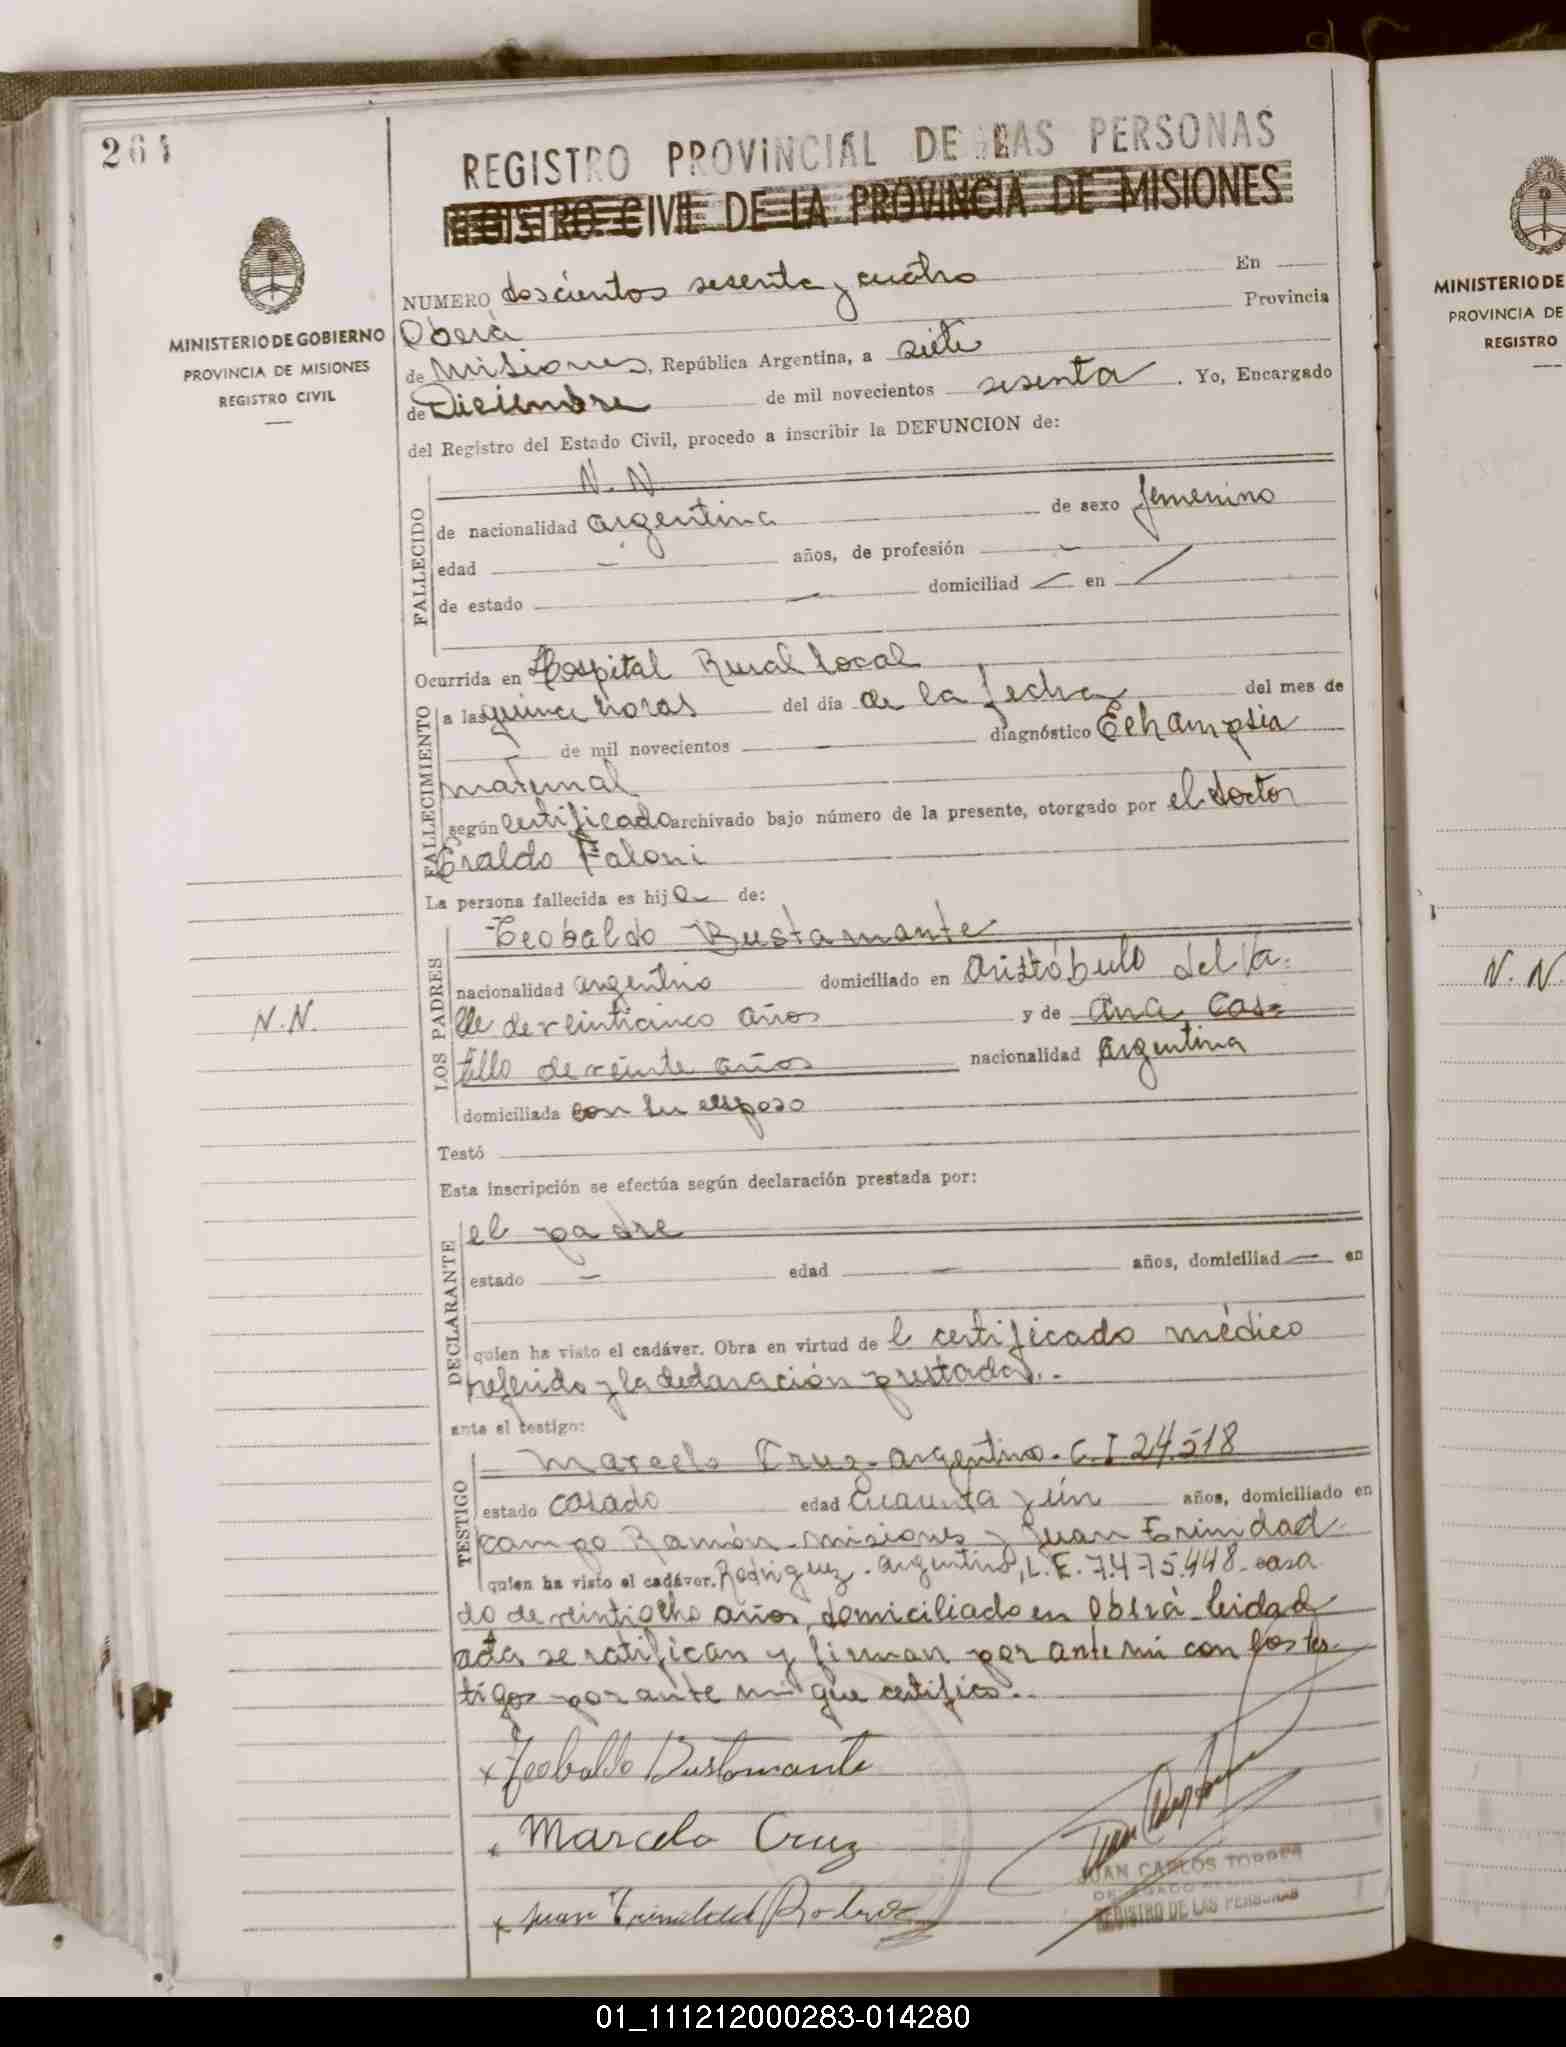 264
REGISTRO PROVINCIAL DE LAS PERSONAS
REGISTRO CIVIL DE LA PROVINCIA DE MISIONES
MINISTERIO DE GOBIERNO
PROVINCIA DE MISIONES
REGISTRO CIVIL
NUMERO doscientos sesenta y cuatro En
Oberá Provincia
de Misiones, República Argentina, a siete
de Diciembre de mil novecientos sesenta. Yo, Encargado
del Registro del Estado Civil, procedo a inscribir la DEFUNCION de:
FALLECIDO
N. N.
de nacionalidad argentina de sexo femenino
edad — años, de profesión —
de estado — domiciliad — en —
Ocurrida en Hospital Rural local
FALLECIMIENTO
a las quince horas del día de la fecha del mes de
— de mil novecientos — diagnóstico Eclampsia
maternal
según certificado archivado bajo número de la presente, otorgado por el doctor
Eraldo Faloni
La persona fallecida es hija de:
LOS PADRES
Teobaldo Bustamante
nacionalidad argentino domiciliado en Aristóbulo del Va-
lle de veinticinco años y de Ana Cas-
tillo de veinte años nacionalidad argentina
domiciliada con su esposo
N.N.
Testó
Esta inscripción se efectúa según declaración prestada por:
DECLARANTE
el padre
estado — edad — años, domiciliad — en
quien ha visto el cadáver. Obra en virtud de l certificado médico
referido y la declaración prestada.-
ante el testigo:
TESTIGO
Marcelo Cruz - argentino - C.I 24.518
estado casado edad cuarenta y ún años, domiciliado en
campo Ramón - misiones y Juan Trinidad
quien ha visto el cadáver. Rodriguez - argentino, L.E. 7.475.448 - casa
do de veintiocho años, domiciliado en Oberá - leida el
acta se ratifican y firman por ante mi con los tes-
tigos por ante mi que certifico.-
x Teobaldo Bustamante
x Marcelo Cruz
x Juan Trinidad
JUAN CARLOS TORRES
REGISTRO DE LAS PERSONAS
MINISTERIO DE
PROVINCIA DE
REGISTRO
N. N.
01_111212000283-014280